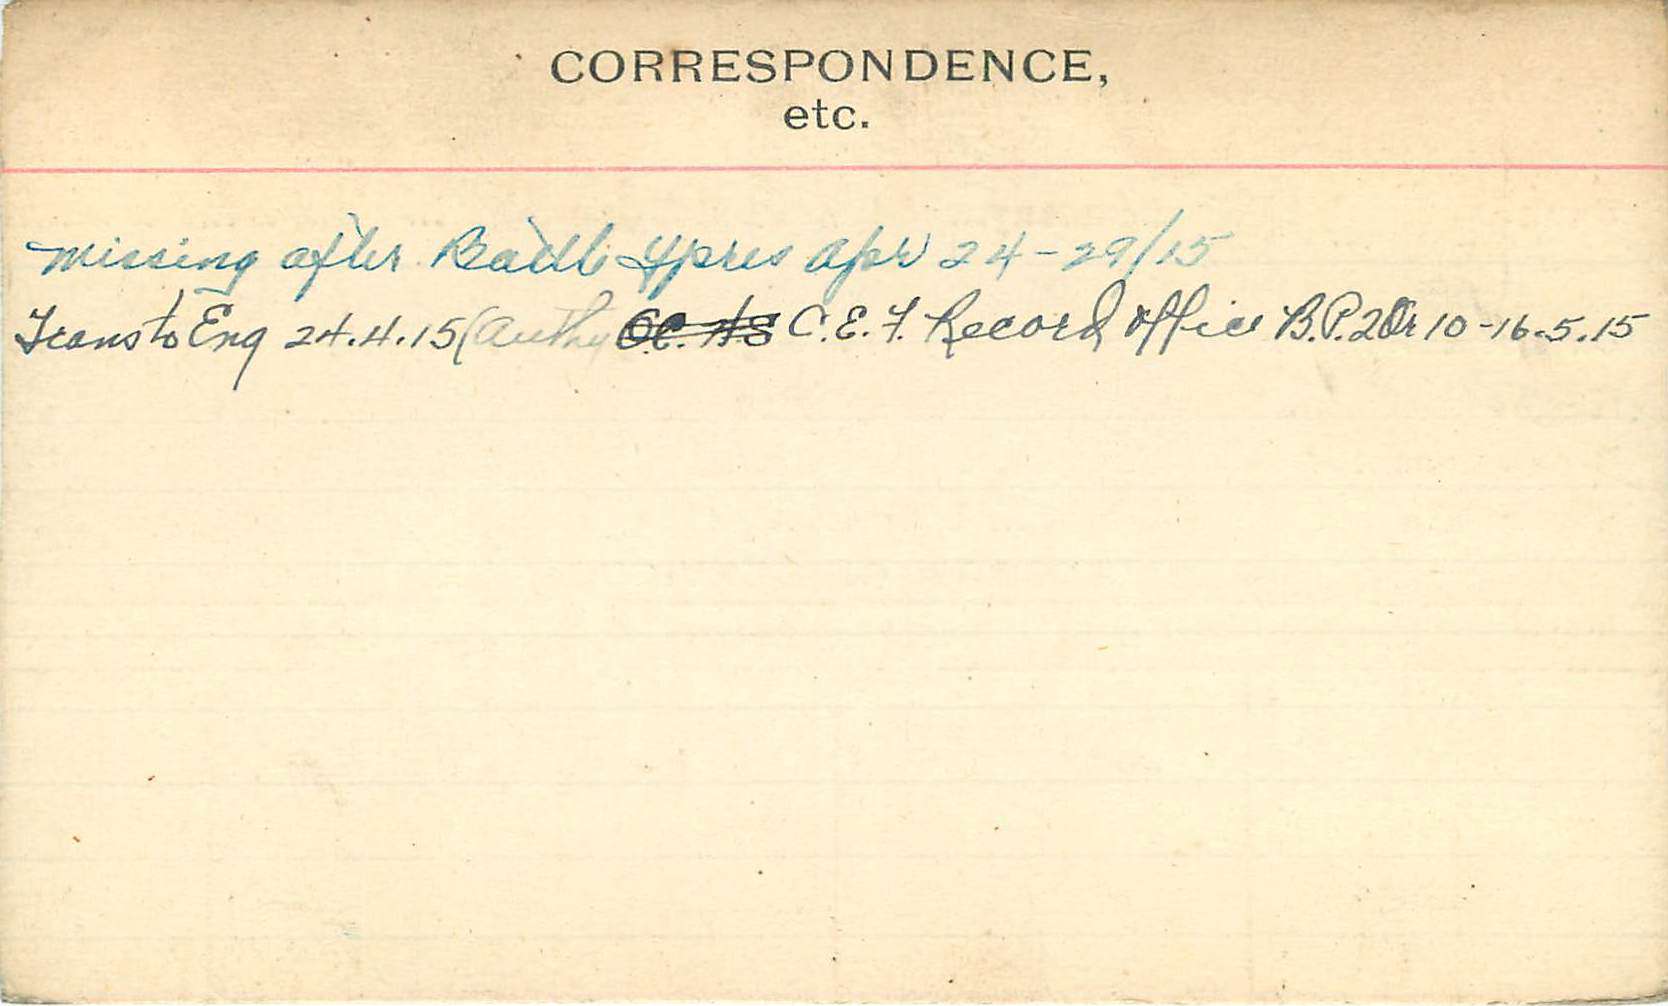 CORRESPONDENCE,
etc.
Missing after Battle Ypres Apr 24-29/15
Trans to Eng 24.4.15 (Authy C.E.F. Record Office B.P.2 Or 10-16.5.15